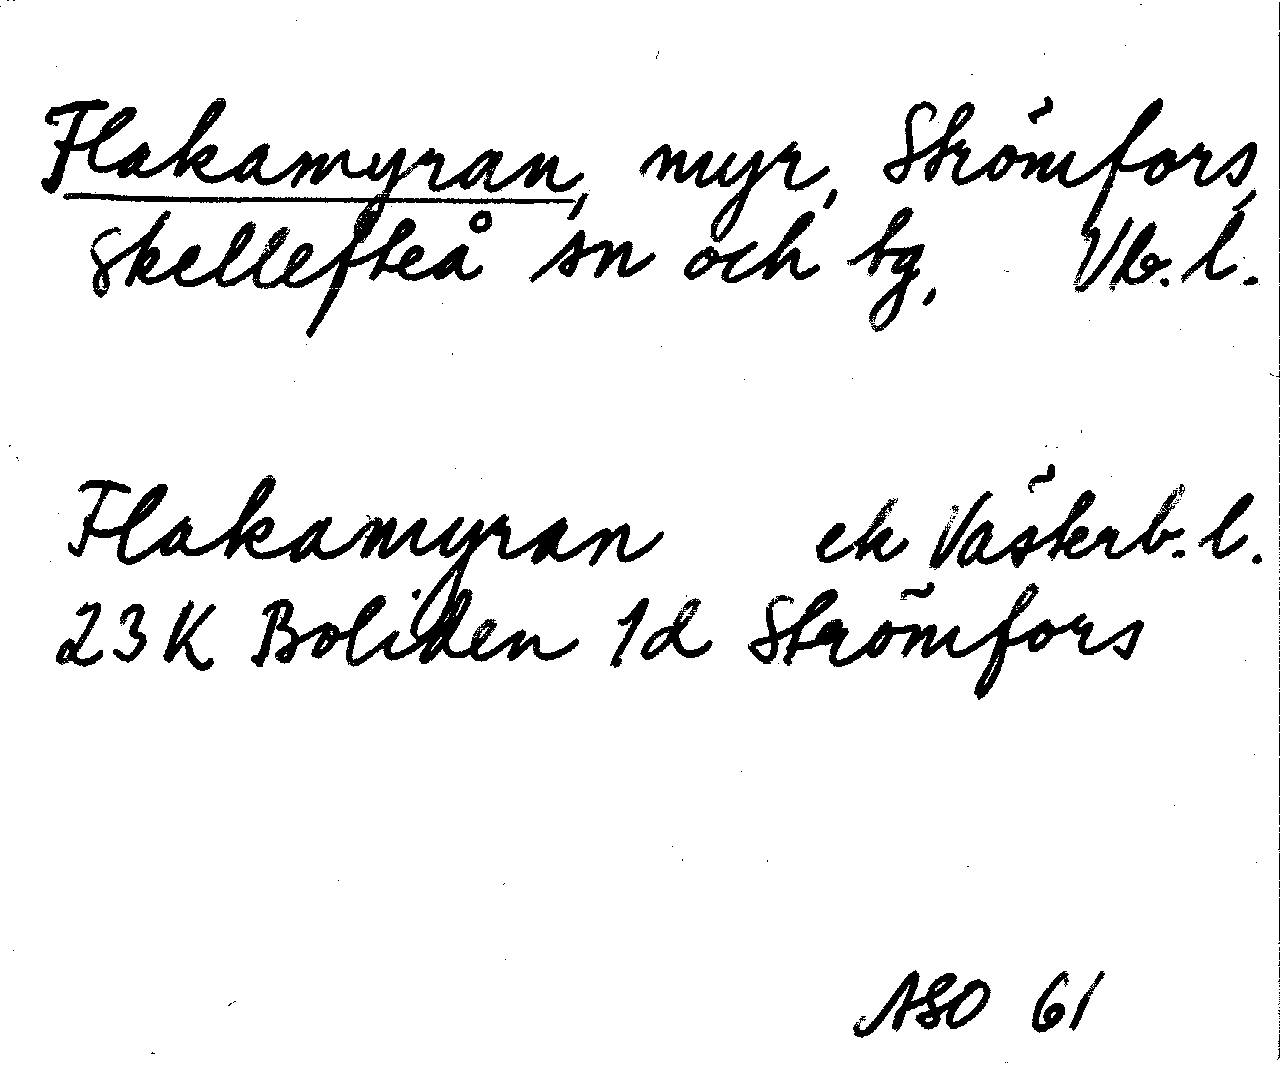 Flakamyran, myr, Strömfors,
Skellefteå sn och tg, Vb. l.
Flakamyran ek Västerb. l.
23K Boliden 1d Strömfors
ASO 61